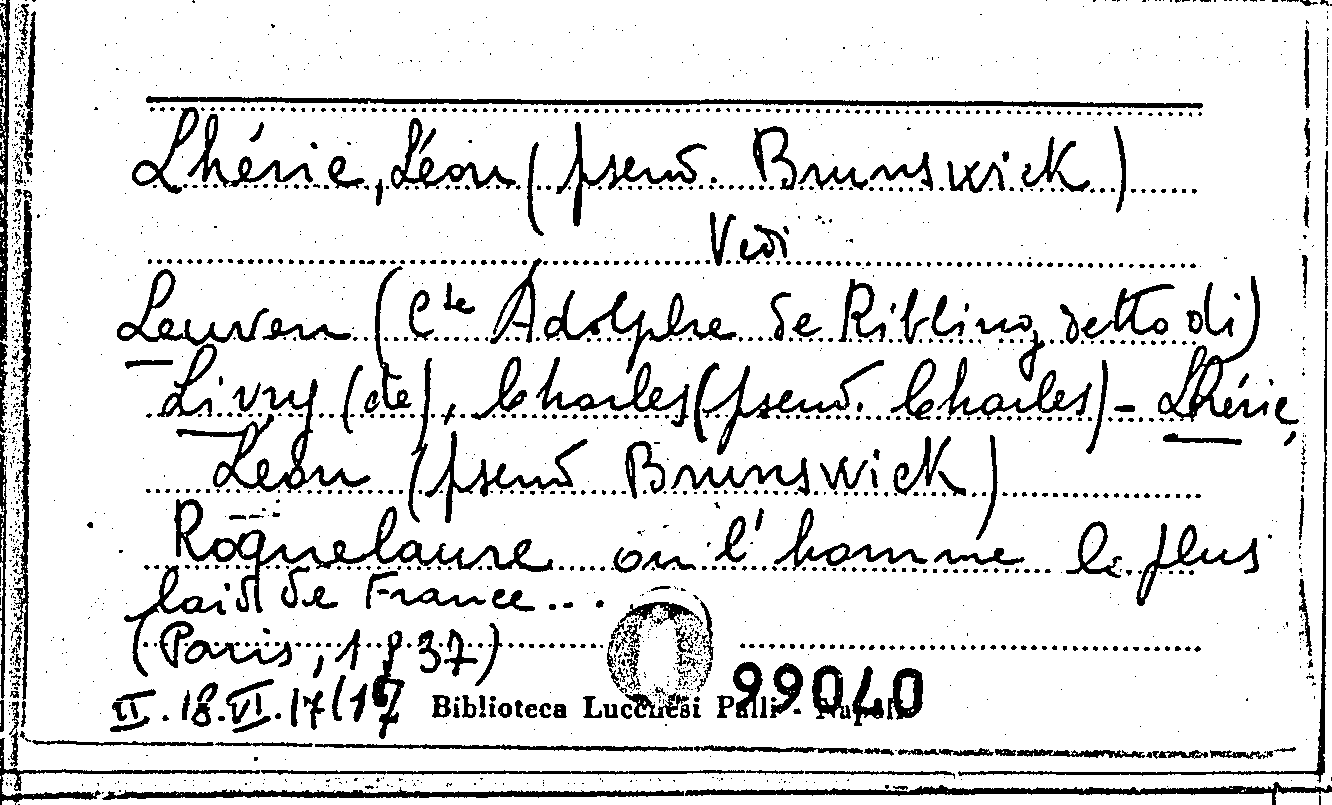 Lhérie, Léon (pseud. Brunswick)
Vedi
Leuven (Cte Adolphe de Ribbing detto di)
Livry (de), Charles (pseud. Charles) - Lhérie,
Léon (pseud Brunswick)
Roquelaure ou l'homme le plus
laid de France...
(Paris, 1837)
II. 18. VI. 17(17
Biblioteca Lucchesi Palli - Napoli
99040